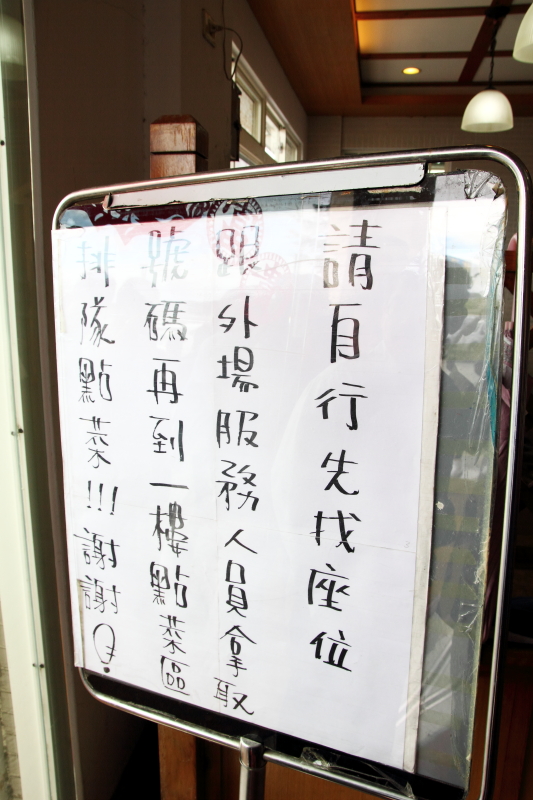 請自行先找座位
跟外場服務人員拿取
號碼再到一樓點菜區
排隊點菜!!!謝謝!